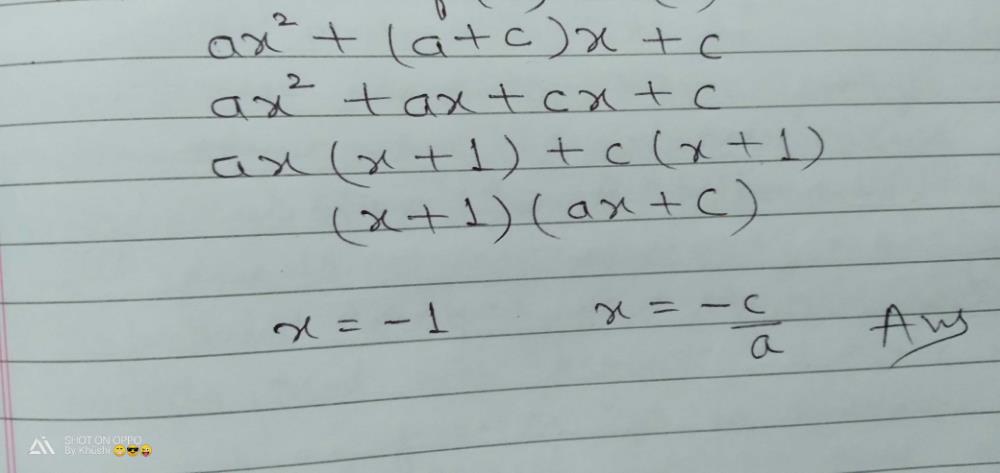 ax² + (a+c)x + c
ax² + ax + cx + c
ax(x+1) + c(x+1)
(x+1)(ax+c)
x = -1 x = -c/a Ans
SHOT ON OPPO
By Khushi 😁😎😜